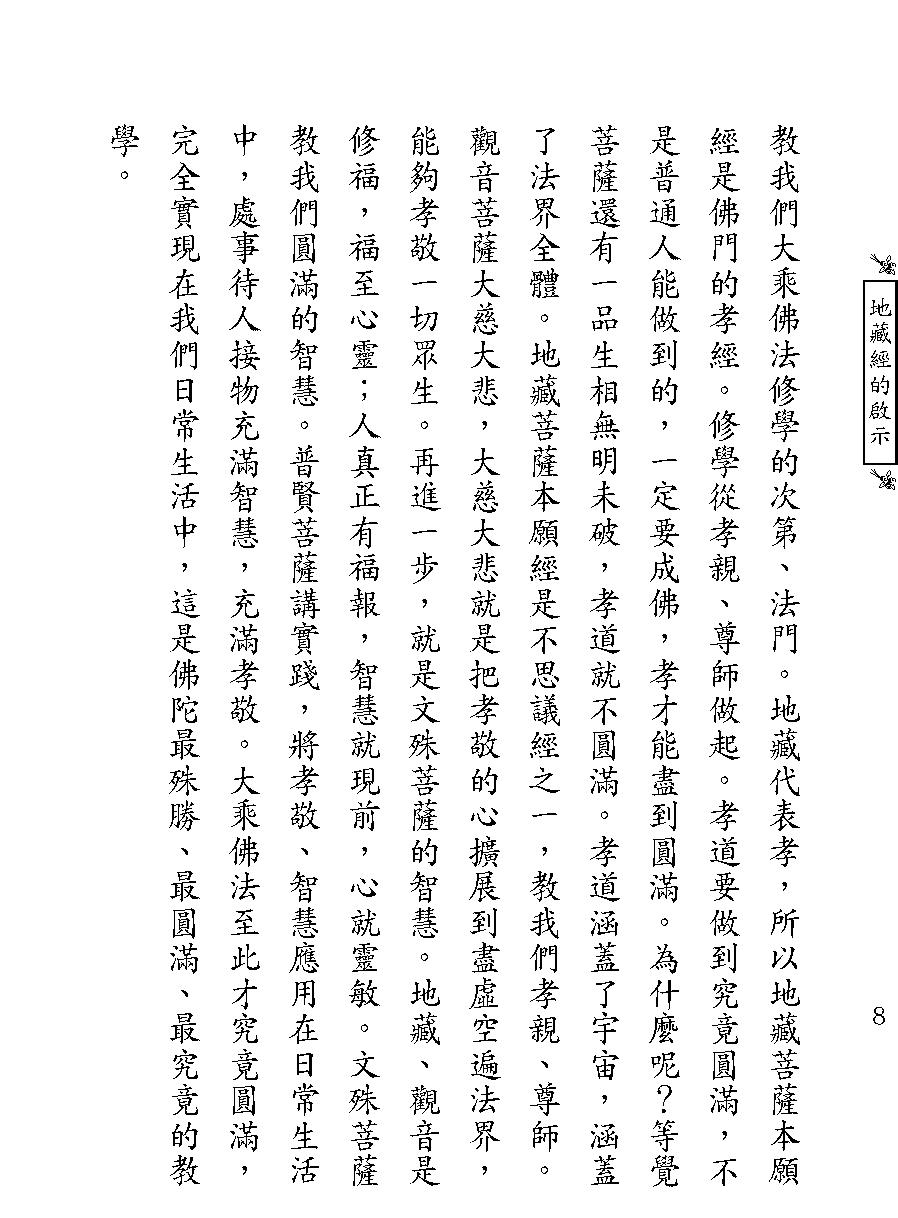 地藏經的啟示
8
教我們大乘佛法修學的次第、法門。地藏代表孝，所以地藏菩薩本願
經是佛門的孝經。修學從孝親、尊師做起。孝道要做到究竟圓滿，不
是普通人能做到的，一定要成佛，孝才能盡到圓滿。為什麼呢？等覺
菩薩還有一品生相無明未破，孝道就不圓滿。孝道涵蓋了宇宙，涵蓋
了法界全體。地藏菩薩本願經是不思議經之一，教我們孝親、尊師。
觀音菩薩大慈大悲，大慈大悲就是把孝敬的心擴展到盡虛空遍法界，
能夠孝敬一切眾生。再進一步，就是文殊菩薩的智慧。地藏、觀音是
修福，福至心靈；人真正有福報，智慧就現前，心就靈敏。文殊菩薩
教我們圓滿的智慧。普賢菩薩講實踐，將孝敬、智慧應用在日常生活
中，處事待人接物充滿智慧，充滿孝敬。大乘佛法至此才究竟圓滿，
完全實現在我們日常生活中，這是佛陀最殊勝、最圓滿、最究竟的教
學。